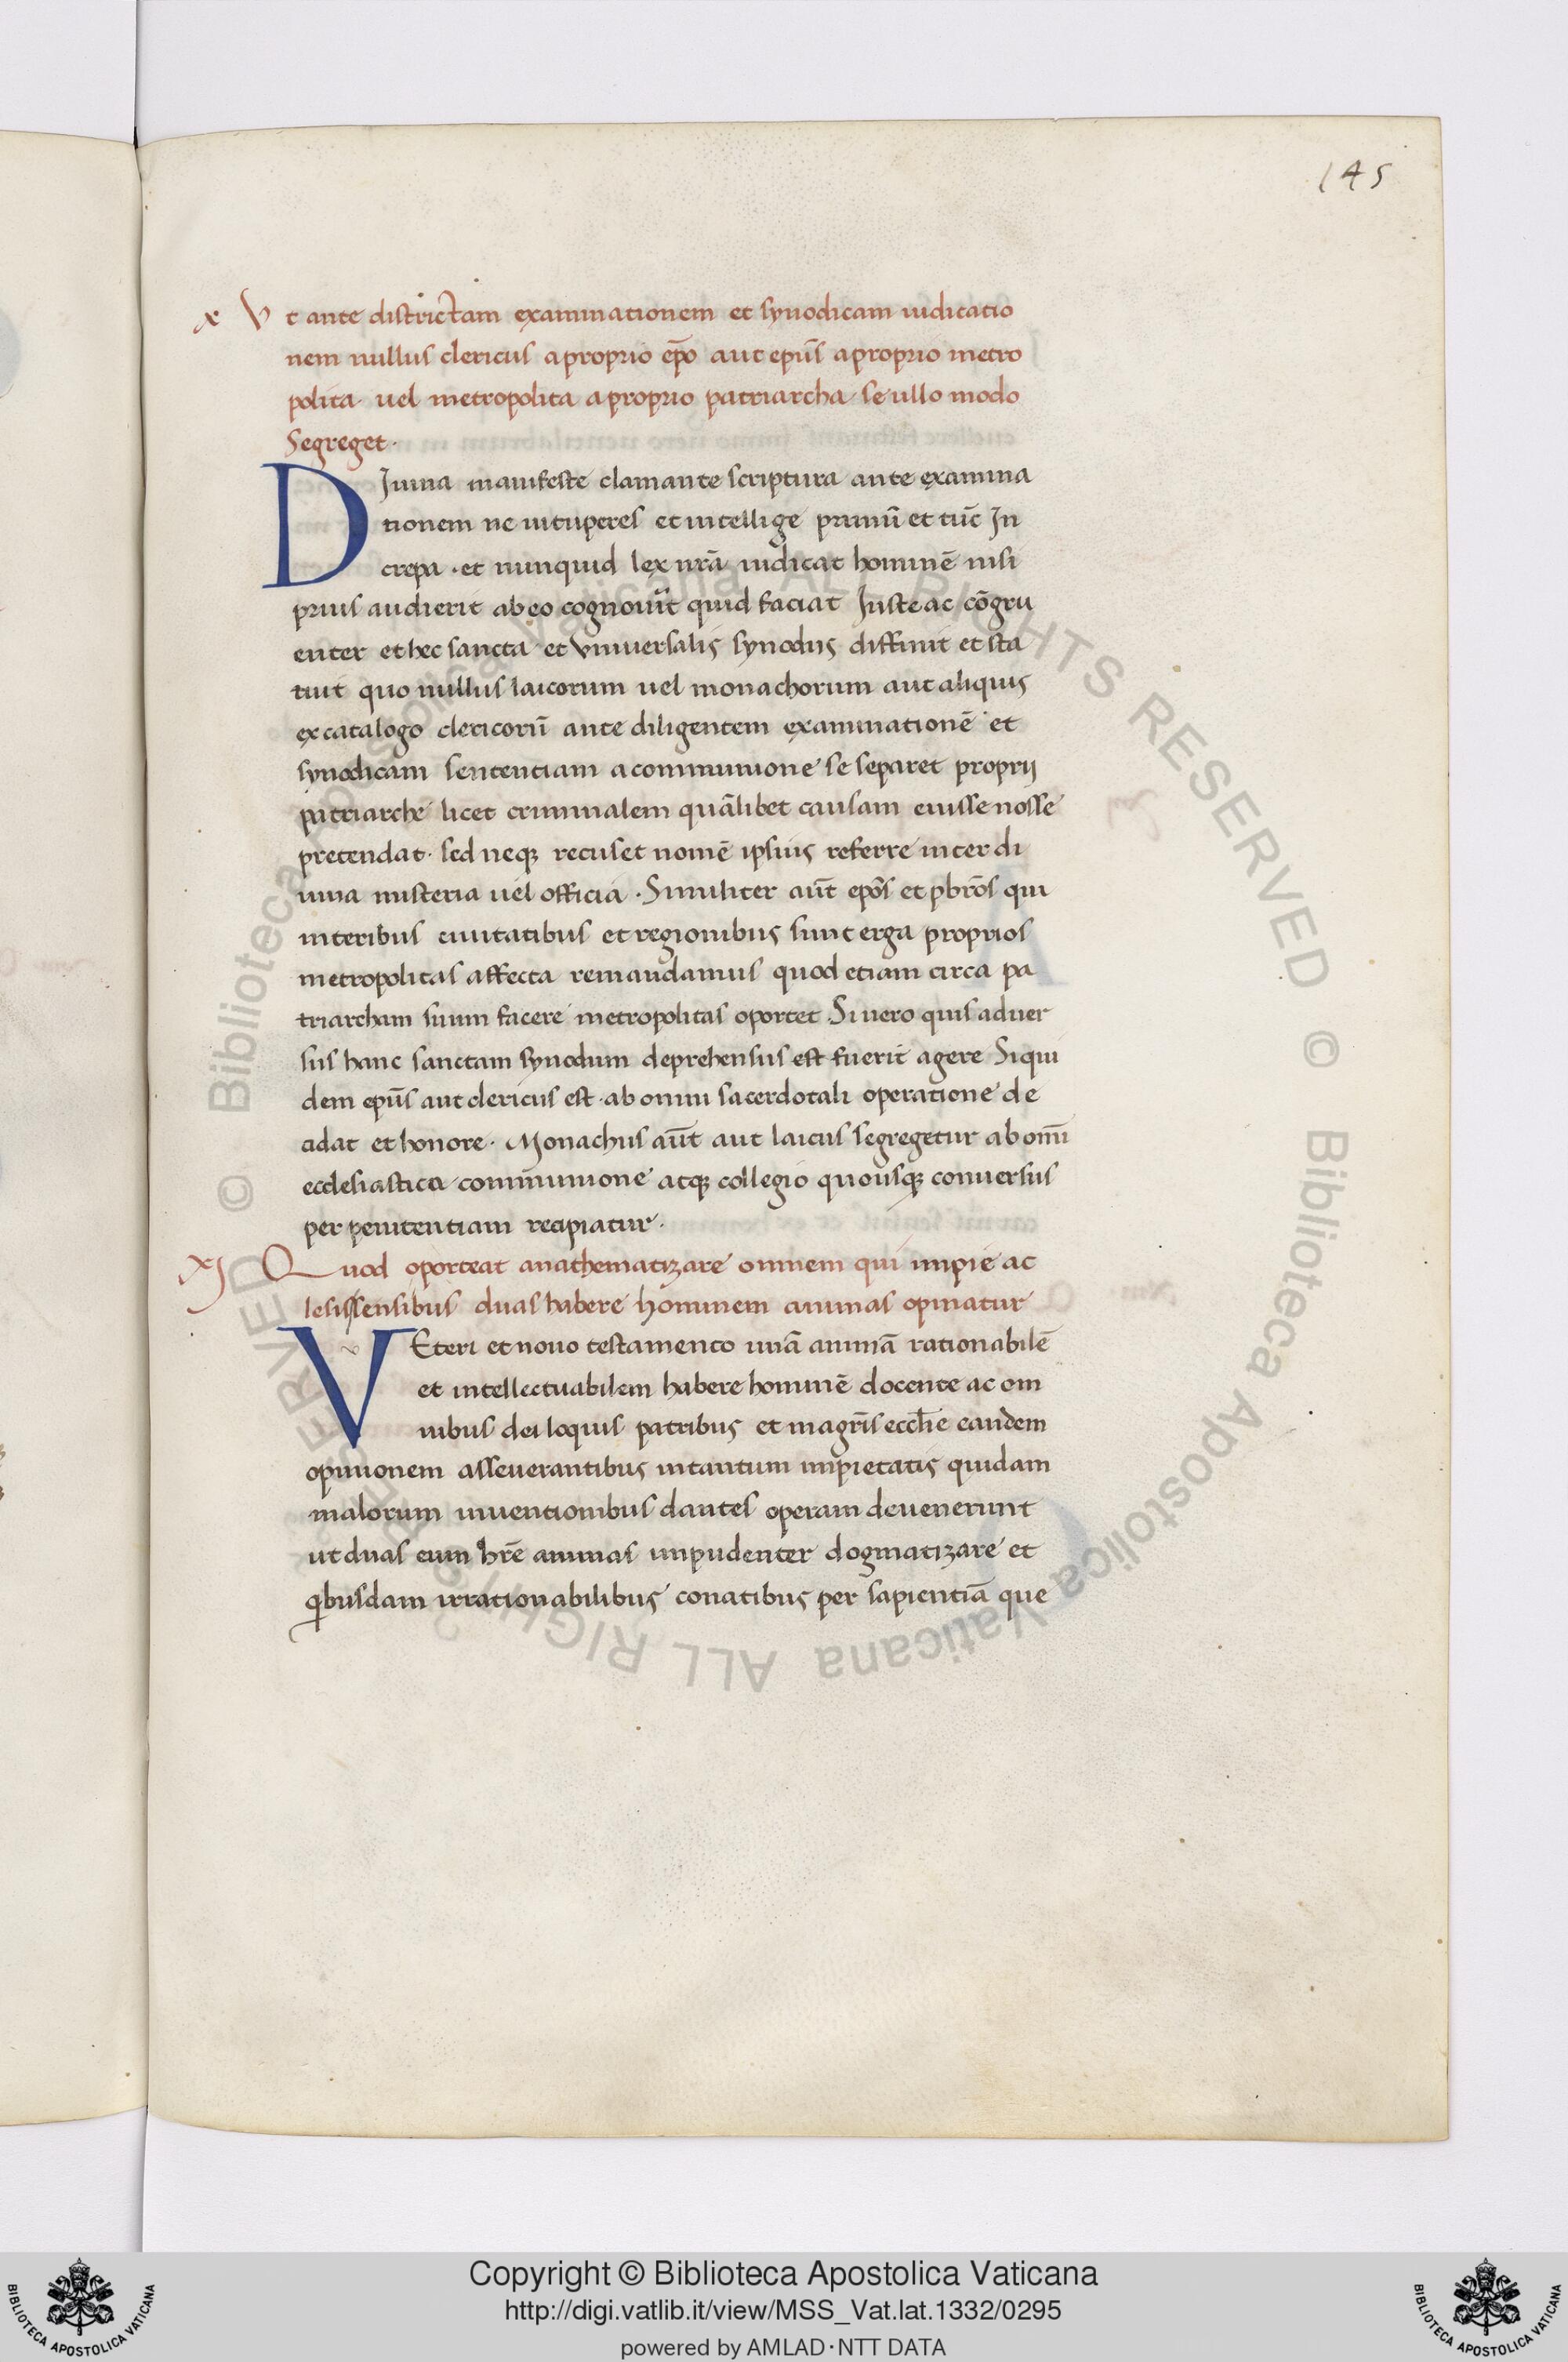 145
x Vt ante districtam examinationem et synodicam iudicatio
nem nullus clericus a proprio ep̄o aut ep̄us a proprio metro
polita· uel metropolita a proprio patriarcha se ullo modo
Segreget·
DIuina manifeste clamante scriptura ante examina
tionem ne uituperes et intellige primū et tūc In
crepa · et nunquid lex nr̄a iudicat hominē nisi
prius audierit ab eo cognouīt quid faciat Iuste ac cōgru
enter et hec sancta et vniuersalis synodus diffinit et sta
tuit quo nullus laicorum uel monachorum aut aliquis
ex catalogo clericorū ante diligentem examinationē et
synodicam sententiam a communione se separet proprij
patriarche licet criminalem quālibet causam eiusse nosse
pretendat· sed neqꝫ recuset nomē ipsius referre inter di
uina misteria uel officia · Similiter aūt ep̄os et pbr̄os qui
interibus ciuitatibus et regionibus sunt erga proprios
metropolitas affecta remandamus quod etiam circa pa
triarcham suum facere metropolitas oportet Si uero quis aduer
sus hanc sanctam synodum deprehensus est fuerit agere Siqui
dem ep̄us aut clericus est · ab omni sacerdotali operatione de
cidat et honore · Monachus aūt aut laicus segregetur ab om̄i
ecclesiastica communione atqꝫ collegio quousqꝫ conuersus
per penitentiam recipiatur ·
xj Quod oporteat anathematizare omnem qui impie ac
lesis sensibus duas habere hominem animas opinatur
VEteri et nouo testamento unā animā rationabilē
et intellectuabilem habere hominē docente ac om
nibus dei loquis patribus et magr̄is eccl̄ie eandem
opinionem asseuerantibus intantum impietatis quidam
malorum inuentionibus dantes operam deuenerunt
ut duas eum hr̄e animas impudenter dogmatizare et
qibusdam irrationabilibus conatibus per sapientiā que
Copyright © Biblioteca Apostolica Vaticana
http://digi.vatlib.it/view/MSS_Vat.lat.1332/0295
powered by AMLAD·NTT DATA
BIBLIOTECA APOSTOLICA VATICANA
BIBLIOTECA APOSTOLICA VATICANA